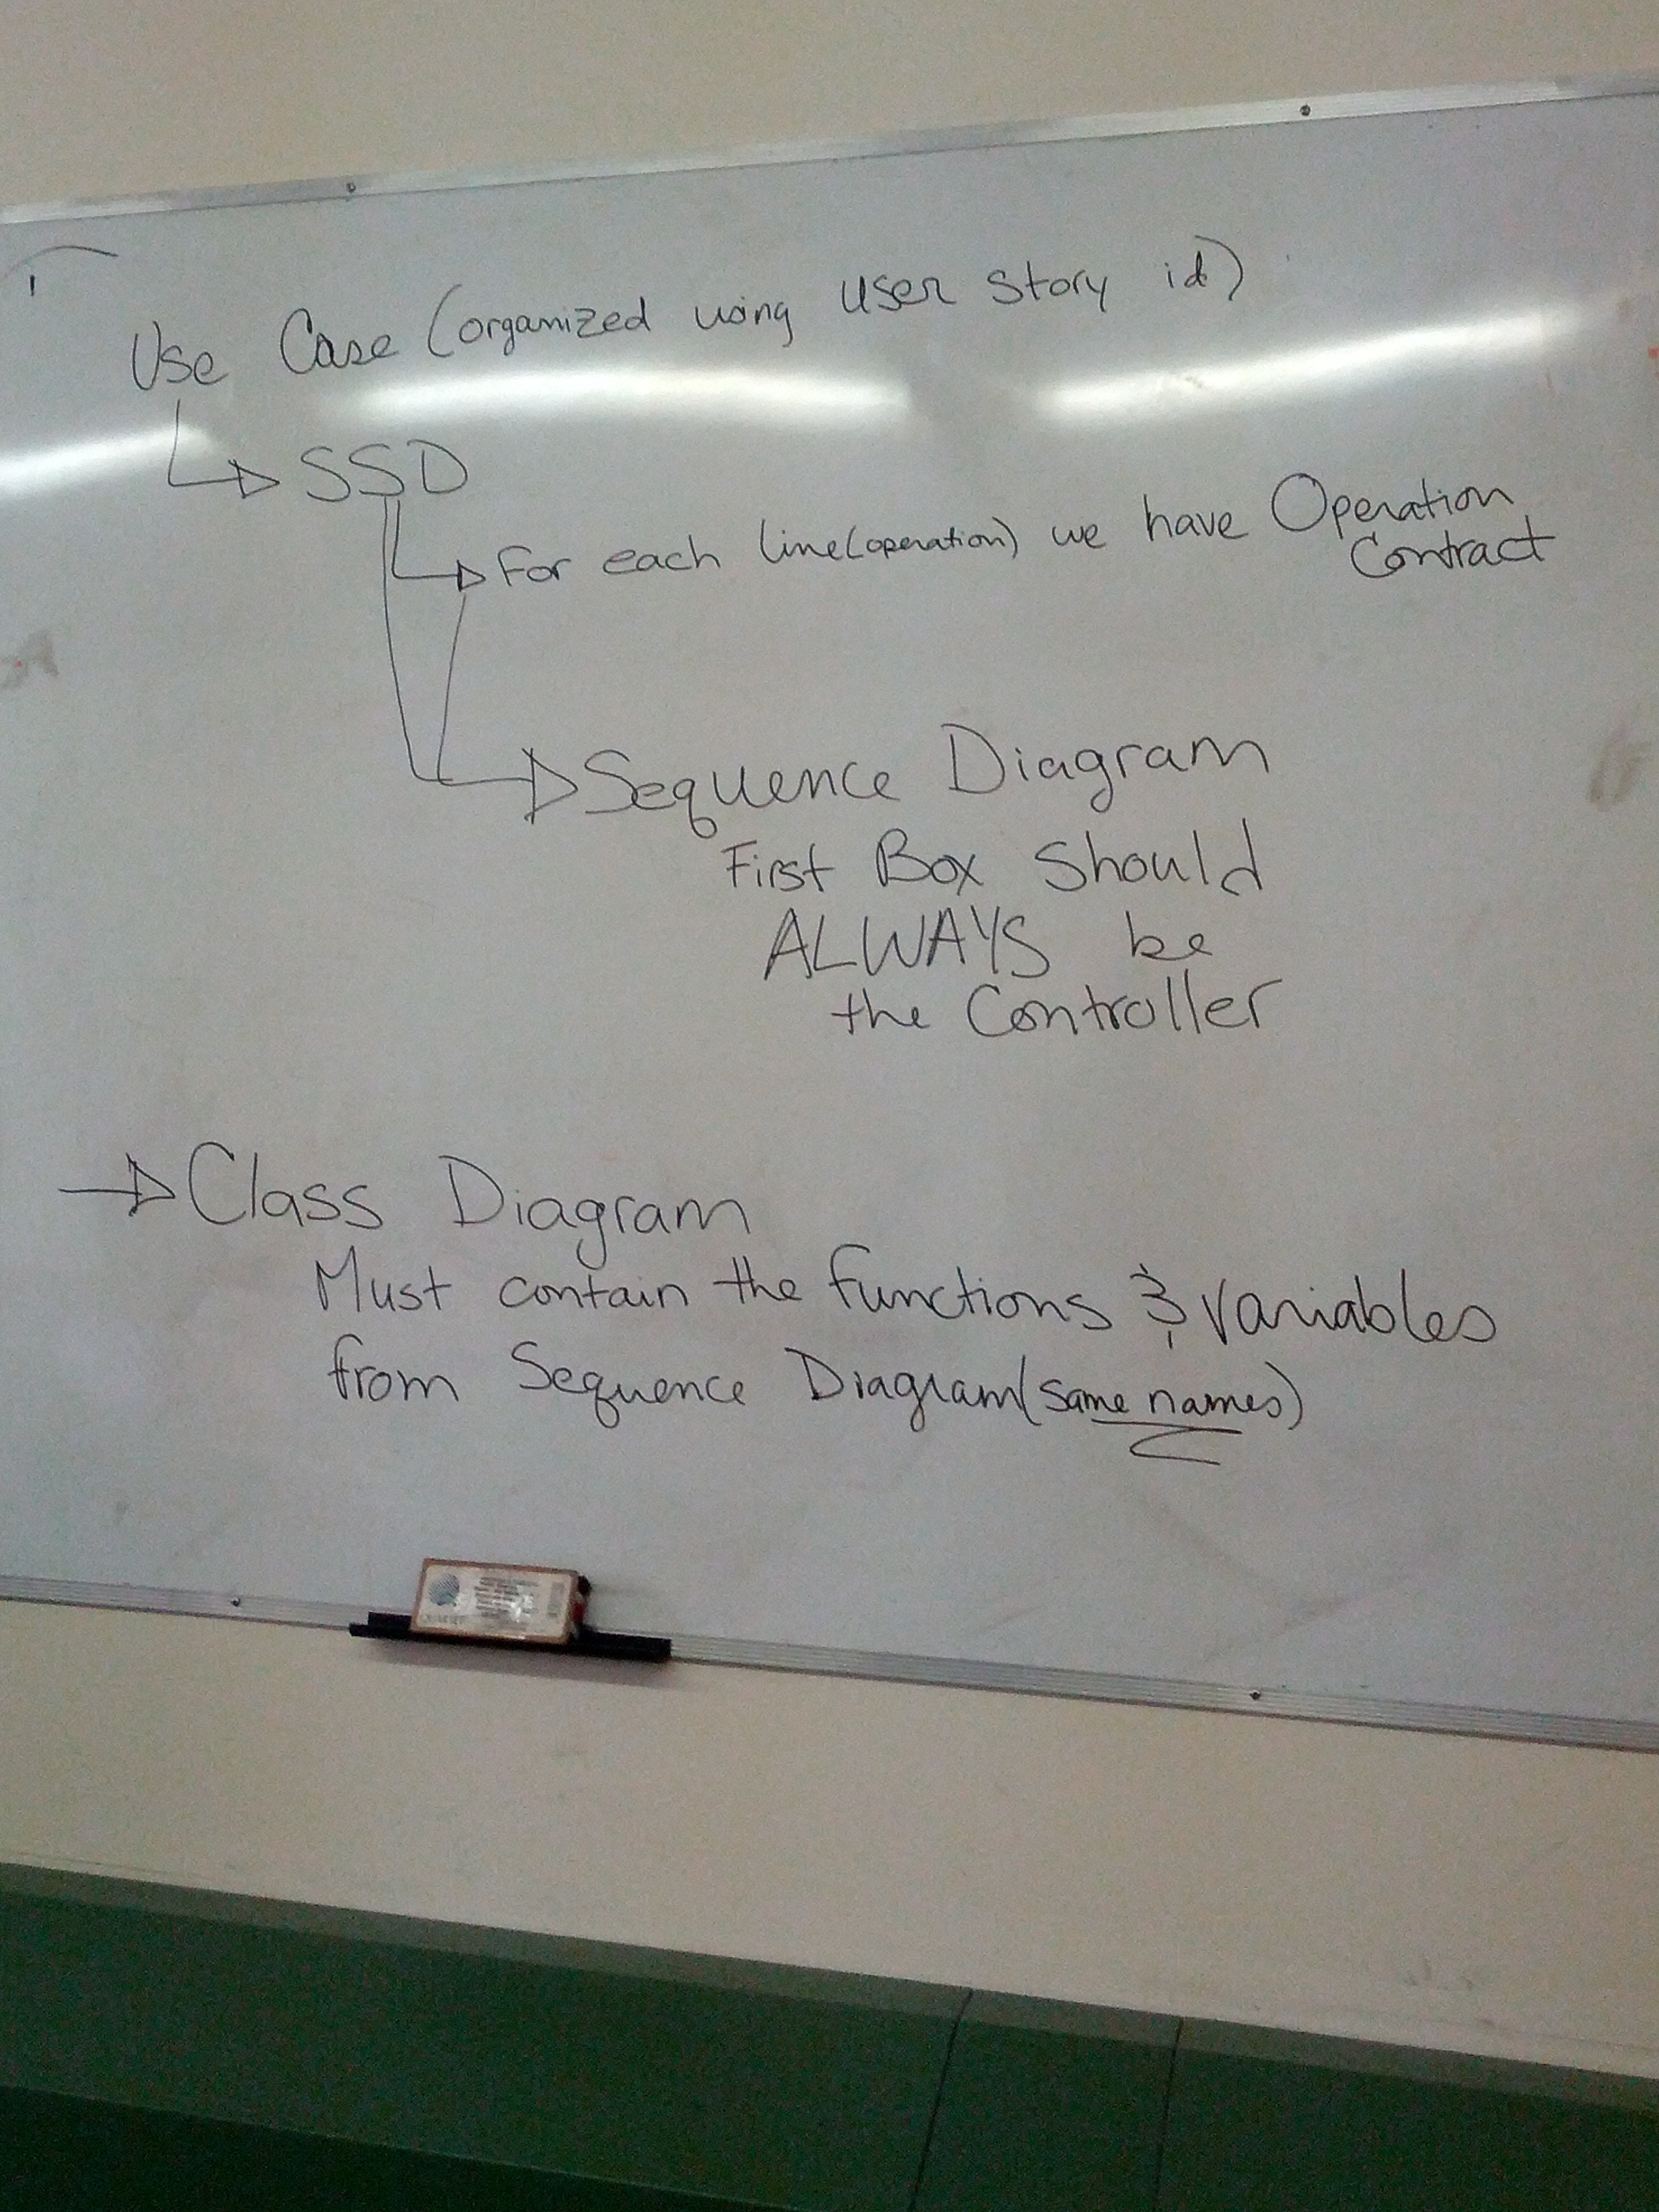 Use Case (organized using user story id)
SSD
For each line(operation) we have Operation
Contract
Sequence Diagram
First Box Should
ALWAYS be
the Controller
Class Diagram
Must contain the functions & variables
from Sequence Diagram(same names)